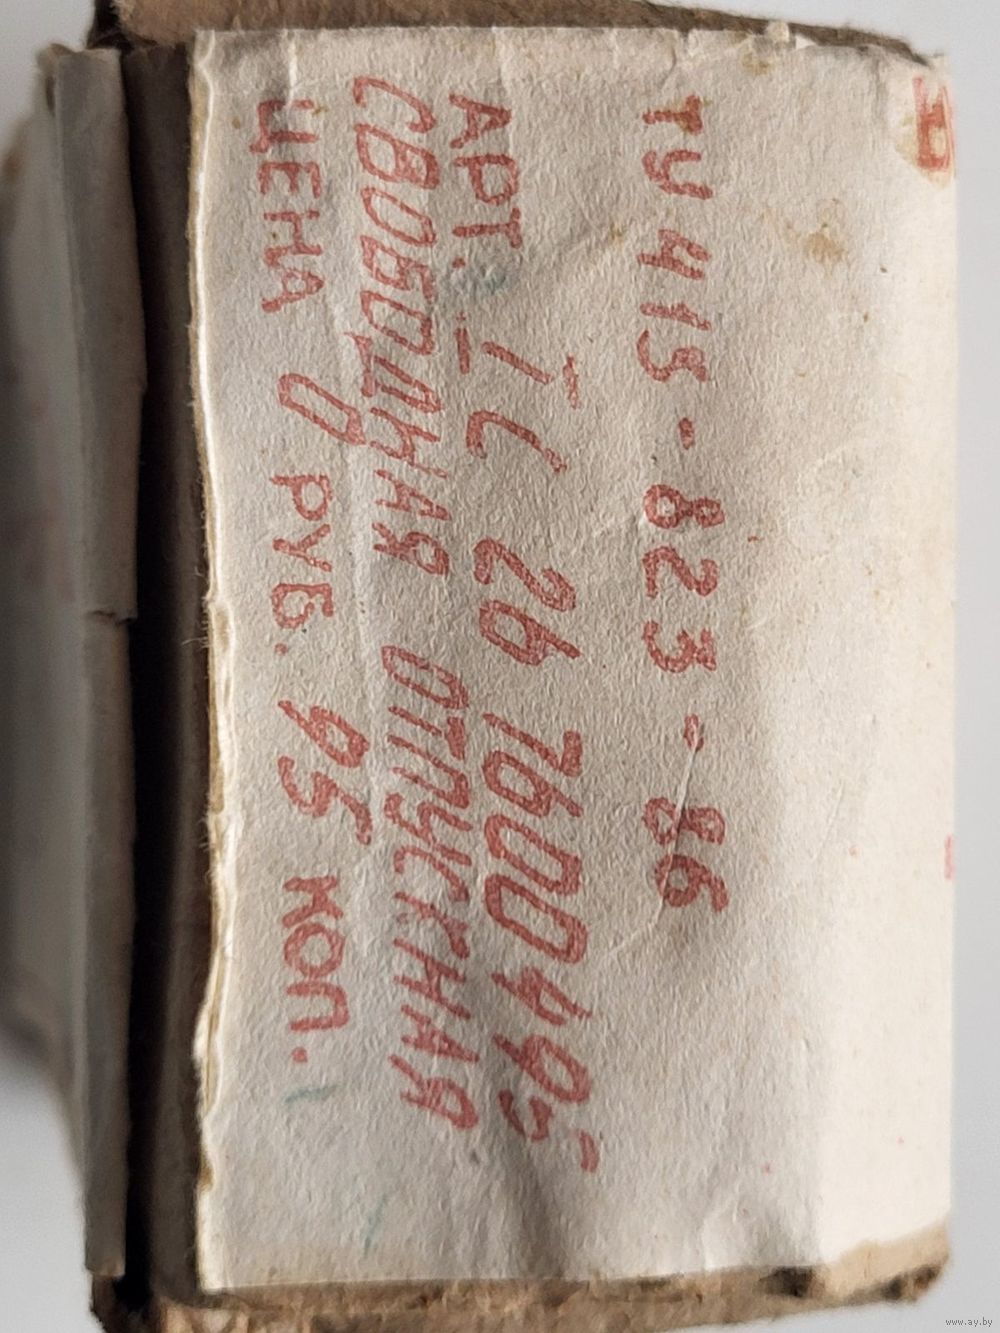 ТУ 415-823-86
АРТ. IС 2б 7600495
СВОБОДНАЯ ОТПУСКНАЯ
ЦЕНА 0 РУБ. 95 КОП.
www.ay.by